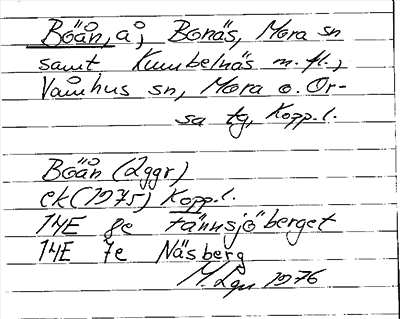 Böån, å, Bonäs, Mora sn
samt Kumbelnäs m.fl.,
Våmhus sn, Mora o. Or-
sa tg, Kopp.l.
Böån (2ggr)
ek (1975) Kopp.l.
14E 8e Fännsjöberget
14E 7e Näsberg
M. Lgn 1976